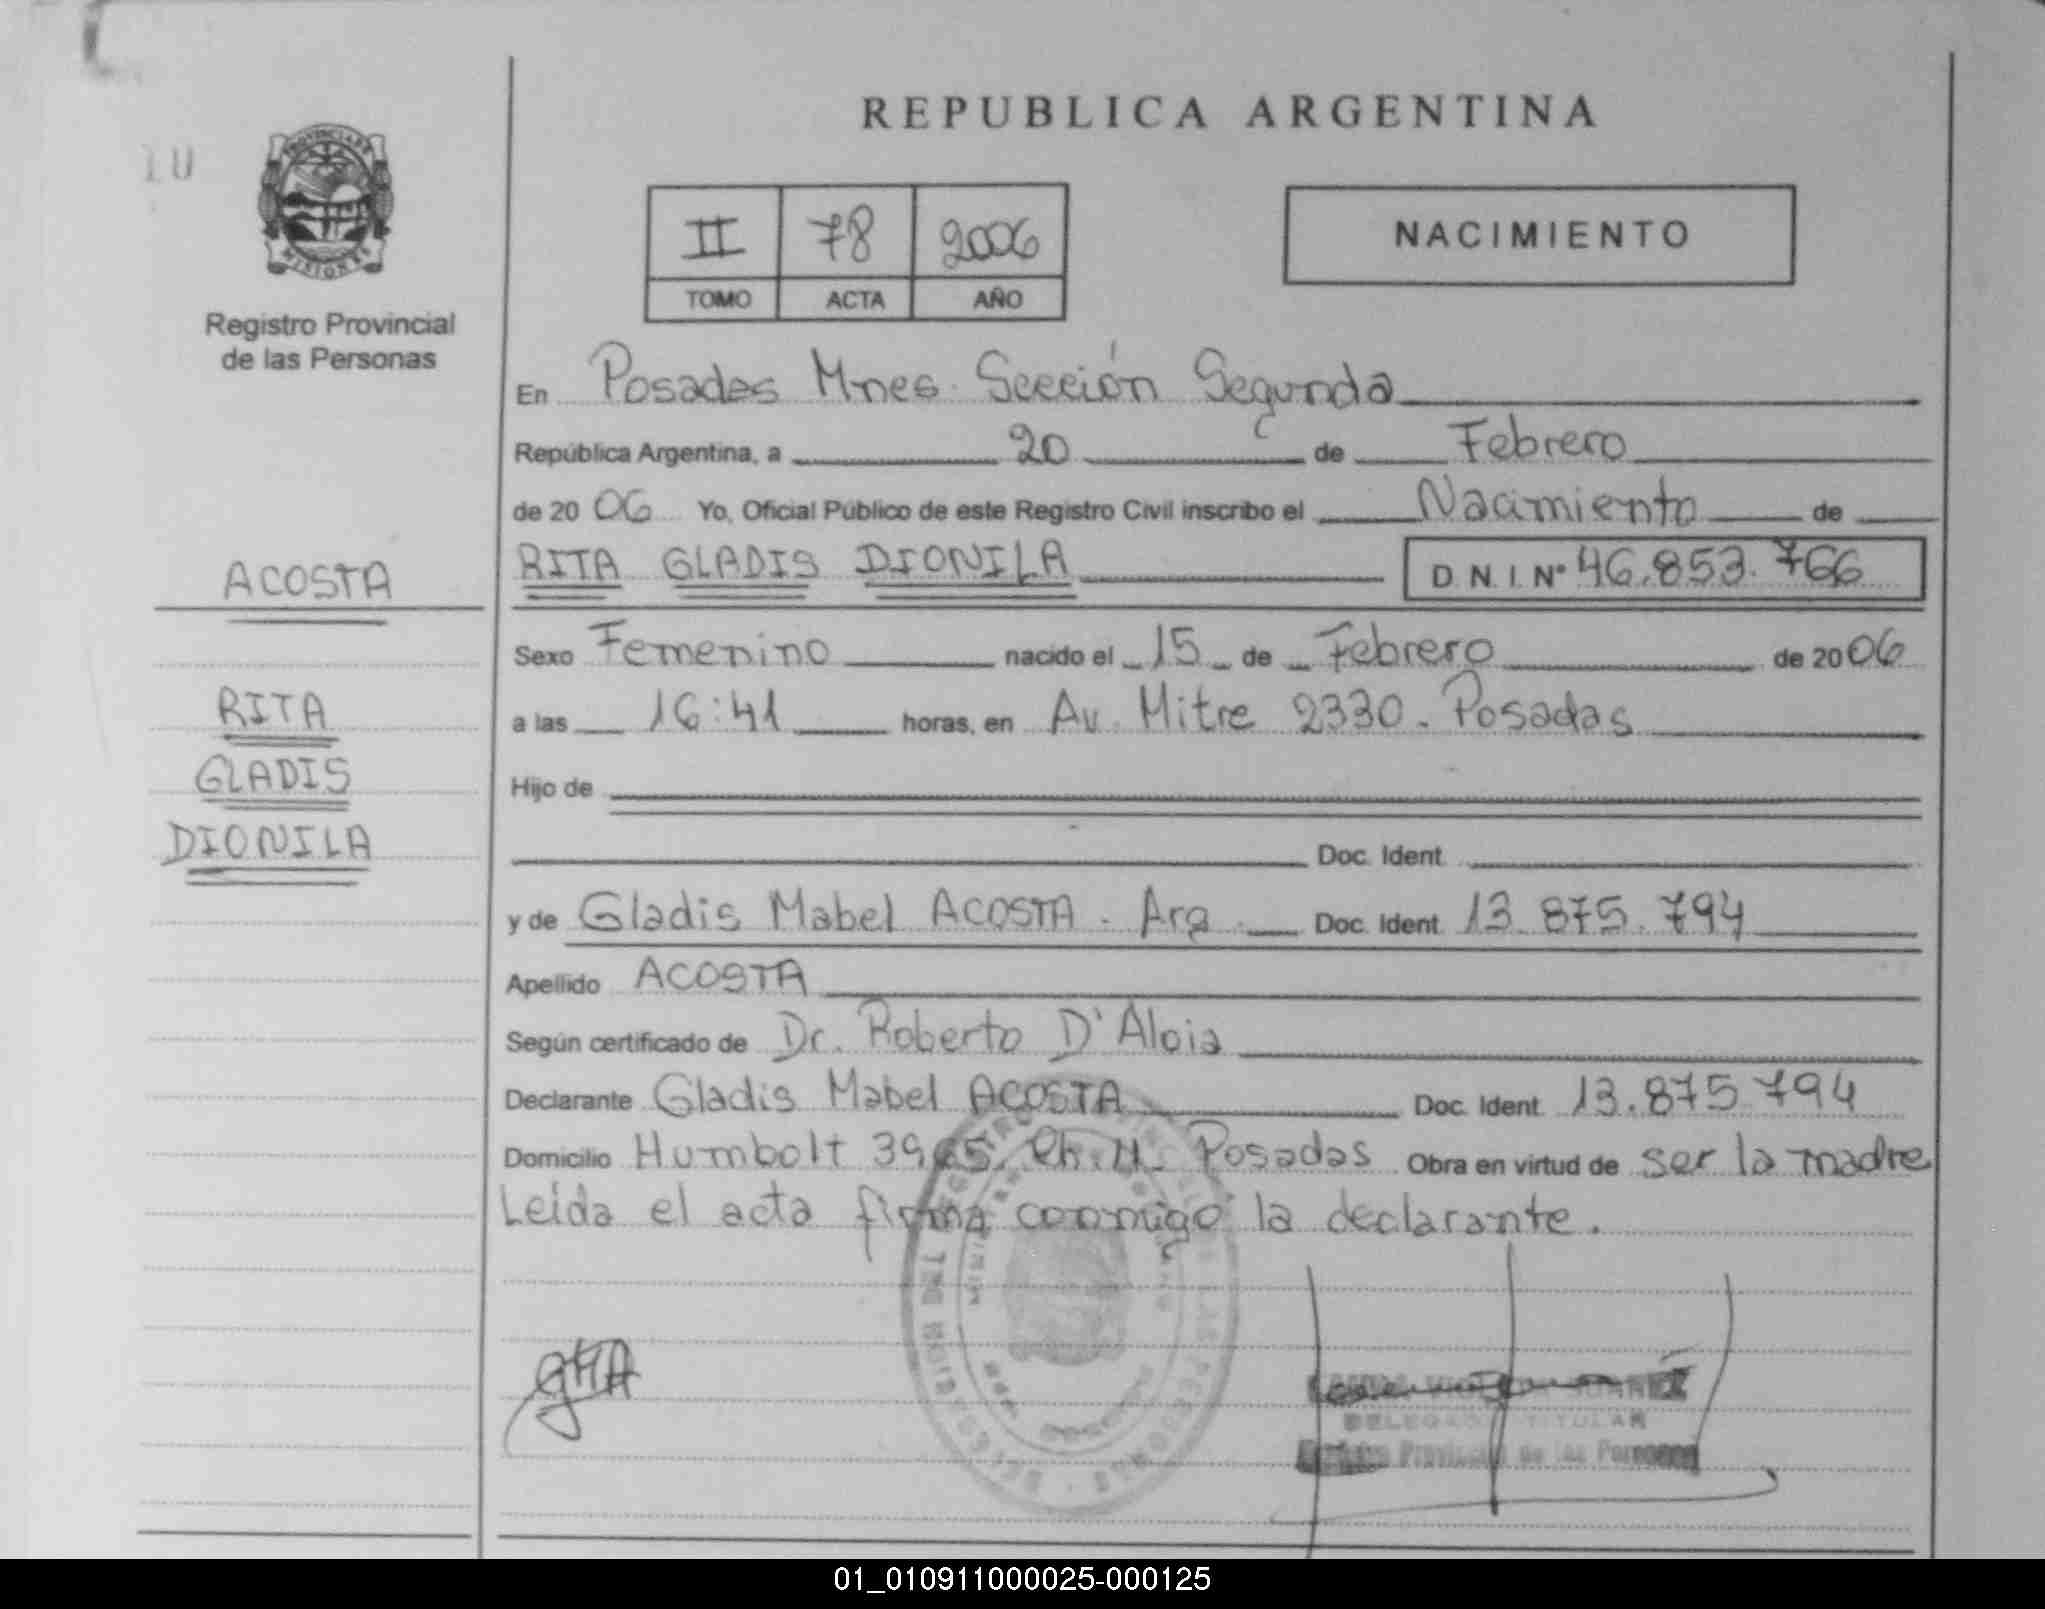 REPUBLICA ARGENTINA
PROVINCIA DE
MISIONES
Registro Provincial
de las Personas
II 78 2006
TOMO ACTA AÑO
NACIMIENTO
En Posadas Mnes. Sección Segunda
República Argentina, a 20 de Febrero
de 2006 Yo, Oficial Público de este Registro Civil inscribo el Nacimiento de
RITA GLADIS DIONILA D.N.I. Nº 46.853.766
ACOSTA
RITA
GLADIS
DIONILA
Sexo Femenino nacido el 15 de Febrero de 2006
a las 16:41 horas, en Av. Mitre 2330. Posadas
Hijo de
Doc. Ident.
y de Gladis Mabel ACOSTA. Arg. Doc. Ident. 13.875.794
Apellido ACOSTA
Según certificado de Dr. Roberto D'Aloia
Declarante Gladis Mabel ACOSTA Doc. Ident. 13.875.794
Domicilio Humbolt 3965. Ch. Posadas Obra en virtud de ser la madre
Leída el acta firma conmigo la declarante.
DELEGADO TITULAR
Registro Provincial de las Personas
01_010911000025-000125